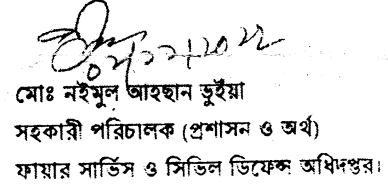 মোঃ নইমুল আহছান ভুইয়া
সহকারী পরিচালক (প্রশাসন ও অর্থ)
ফায়ার সার্ভিস ও সিভিল ডিফেন্স অধিদপ্তর।